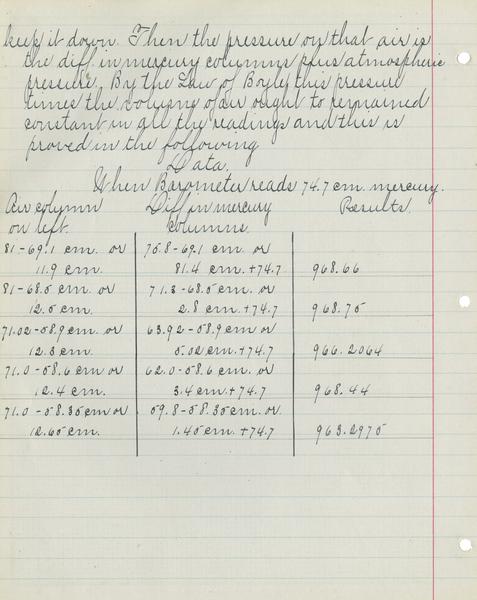 keep it down. Then the pressure on that air is
the diff. in mercury columns plus atmospheric
pressure. By the Law of Boyle, this pressure
times the volume of air ought to remained
constant in all the readings and this is
proved in the following
Data.
When Barometer reads 74.7 cm. mercury.
Air column Diff in mercury Results.
on left. columns.
81-69.1 cm. or 75.8-69.1 cm. or
11.9 cm. 81.4 cm.+74.7 968.66
81-68.5 cm. or 71.3-68.5 cm. or
12.5 cm. 2.8 cm.+74.7 968.75
71.02-58.9 cm or 63.92-58.9 cm or
12.3 cm. 5.02 cm.+74.7 966.2064
71.0-58.6 cm or 62.0-58.6 cm. or
12.4 cm. 3.4 cm.+74.7 968.44
71.0-58.35 cm or 59.8-58.35 cm. or
12.65 cm. 1.45 cm.+74.7 963.2975